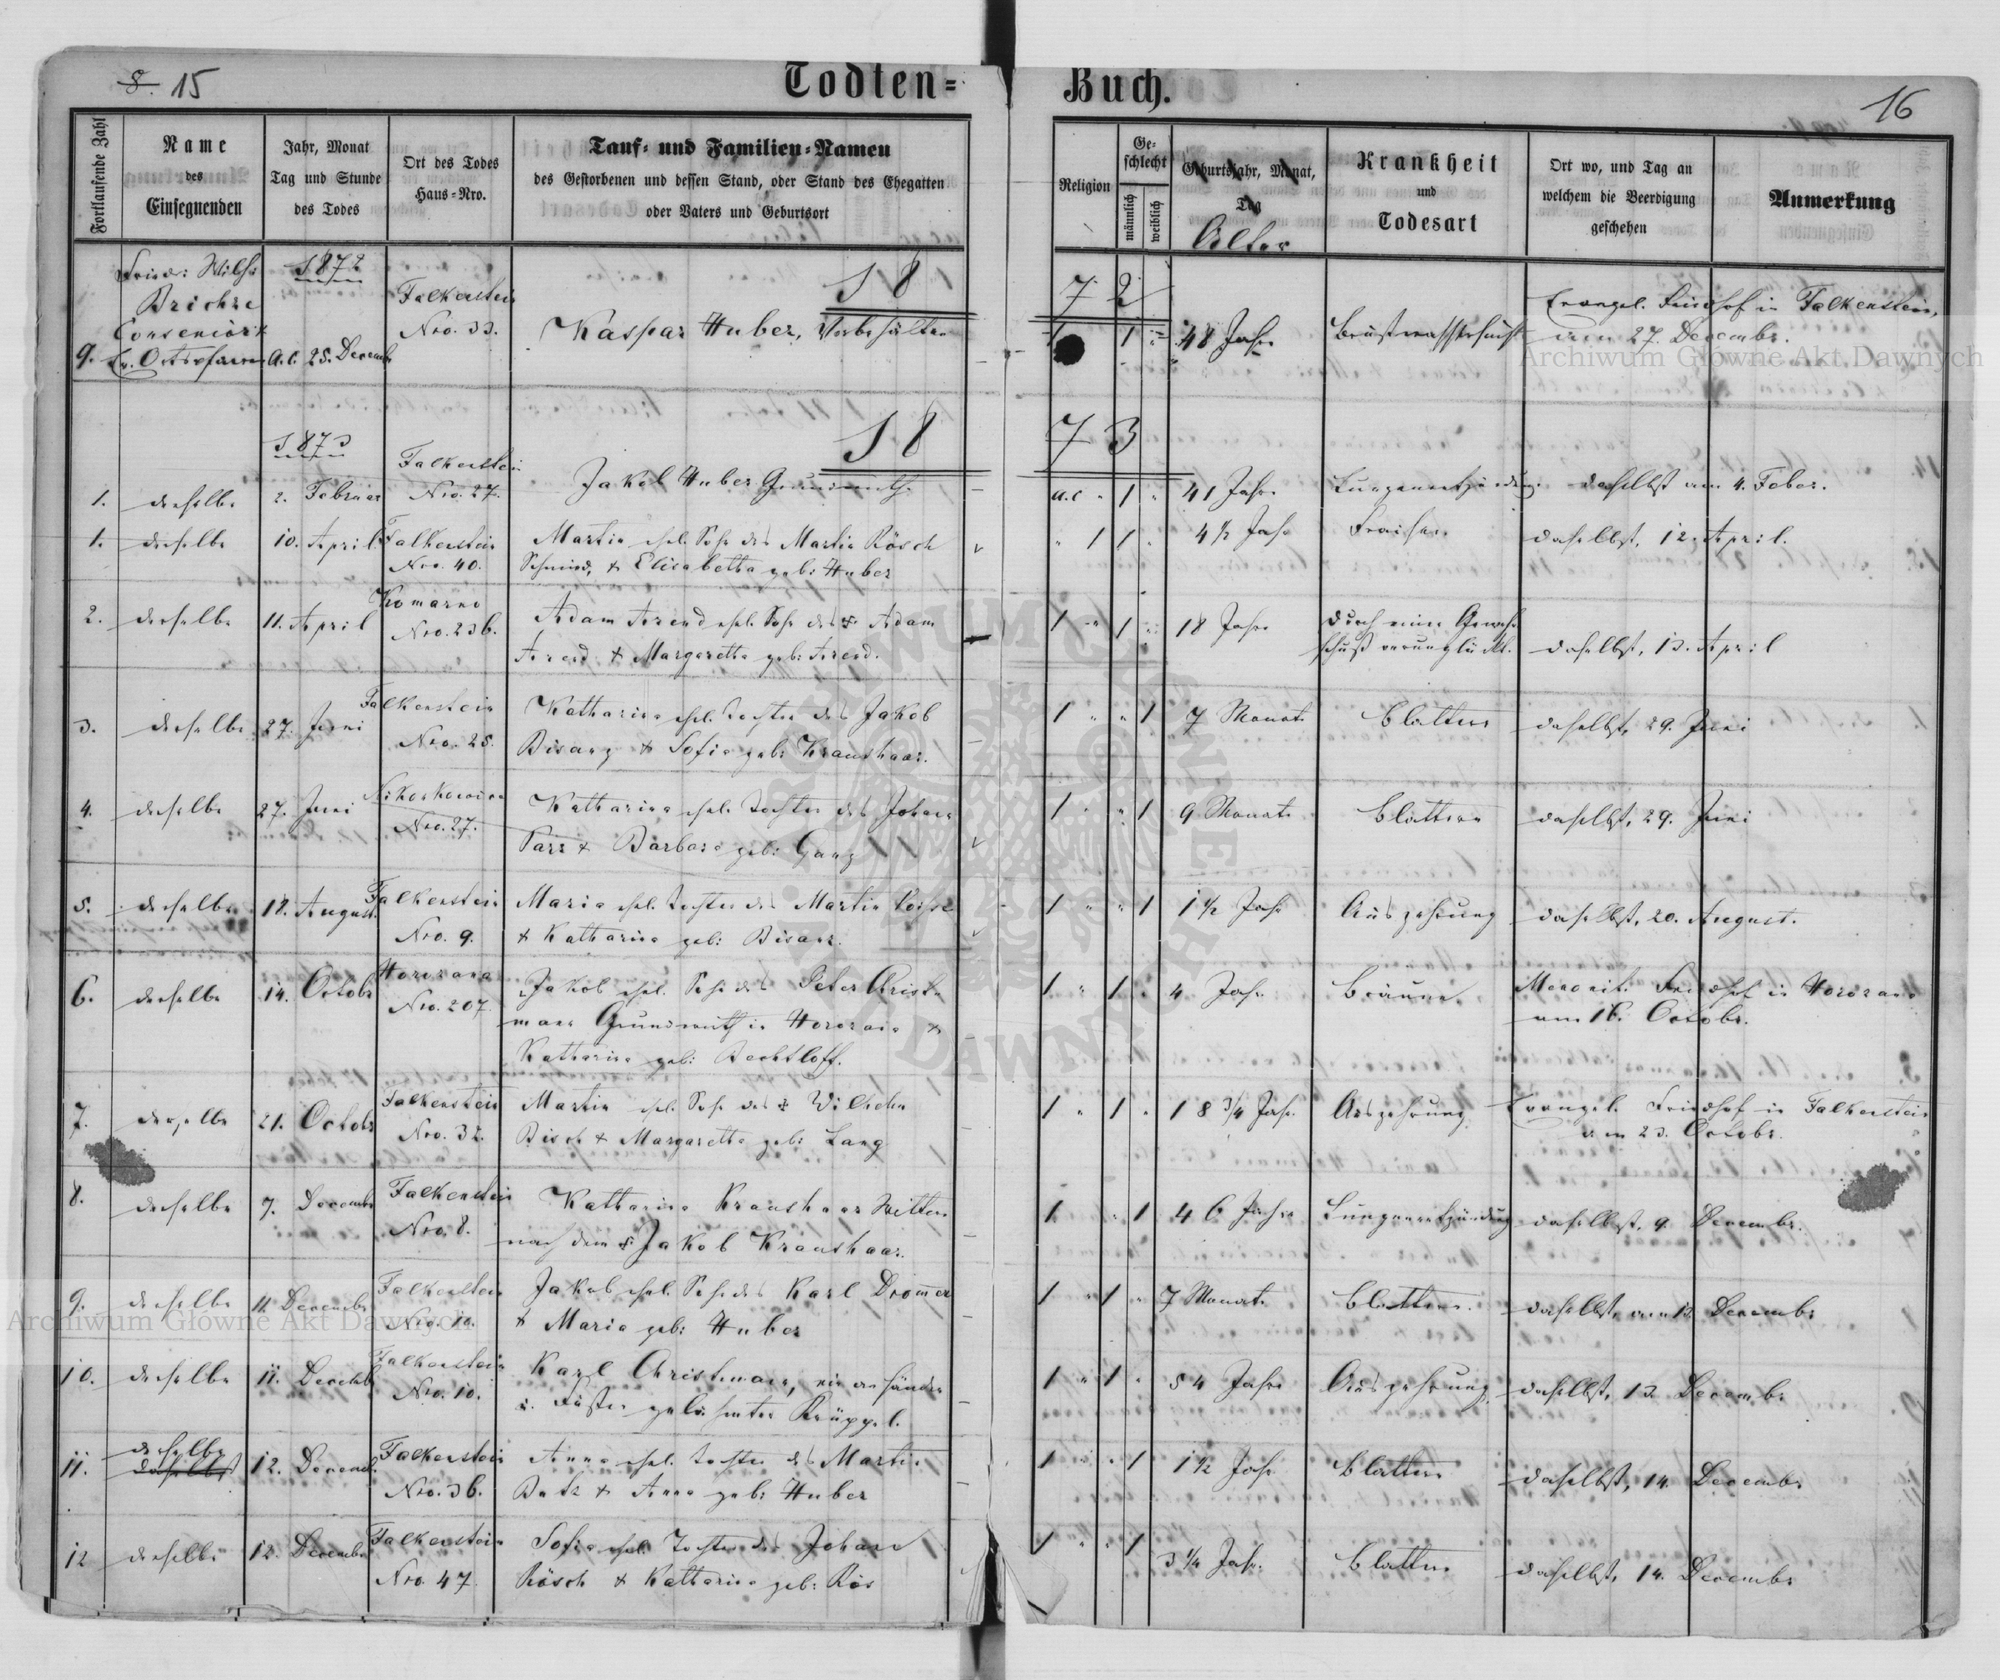 8. 15
Todten=
Buch.
16
Fortlaufende Zahl
Name
des
Einsegnenden
Jahr, Monat
Tag und Stunde
des Todes
Ort des Todes
Haus=Nro.
Tauf= und Familien=Namen
des Gestorbenen und dessen Stand, oder Stand des Ehegatten
oder Vaters und Geburtsort
Religion
Ge=
schlecht
männlich
weiblich
Geburtsjahr, Monat,
Tag
Alter
Krankheit
und
Todesart
Ort wo, und Tag an
welchem die Beerdigung
geschehen
Anmerkung
1872
18
72
9. Falkenstein
Nro. 33.
25. Decemb
Kaspar Huber,
1 48 Jahre
Brustwassersucht
Evangel. Friedhof in Falkenstein,
am 27. Decembr.
1873
18
73
1. derselbe 2. Februar Falkenstein
Nro. 27.
Jakob Huber Grundwirth
a.c " 1 " 41 Jahre Lungenentzündung daselbst am 4. Feber.
1. derselbe 10. April Falkenstein
Nro. 40.
Martin ehel. Sohn des Martin Rösch
Schmied, & Elisabetha geb: Huber
" 1 1 " 4 1/2 Jahr Fraisen daselbst, 12. April.
2. derselbe 11. April Komarno
Nro. 236.
Adam Arend ehel. Sohn des Adam
Arend & Margaretha geb: Arend.
1 " 1 " 18 Jahre durch einen Gewehr
schuß verunglückt. daselbst, 13. April
3. derselbe 27. Juni Falkenstein
Nro. 25.
Katharina ehel. Tochter des Jakob
Bisanz & Sofia geb: Kraushaar.
1 " " 1 7 Monate Blattern daselbst, 29. Juni
4. derselbe 27. Juni
Nro. 27.
Katharina ehel. Tochter des Johann
& Barbara geb: Ganz
1 " " 1 9 Monate Blattern daselbst, 29. Juni
5. derselbe 18. August Falkenstein
Nro. 9.
Maria ehel. Tochter des Martin
& Katharina geb: Bisanz.
1 " " 1 1 1/2 Jahr Auszehrung daselbst, 20. August.
6. derselbe 14. Octobr Horozana
Nro. 207.
Jakob ehel. Sohn des Peter Christ
mann Grundwirth in Horozana &
Katharina geb: Bechtloff.
1 " 1 " 4 Jahr Bräune Menonit. Friedhof in Horozana
am 16. Octobr.
7. derselbe 21. Octobr Falkenstein
Nro. 32.
Martin ehel. Sohn des Wilhelm
Bisch & Margaretha geb: Lang
1 " 1 " 18 3/4 Jahr Auszehrung Evangel. Friedhof in Falkenstein
am 23. Octobr.
8. derselbe 7. Decembr Falkenstein
Nro. 8.
Katharina Kraushaar Wittwe
nach dem Jakob Kraushaar.
1 " 1 46 Jahre Lungenentzündung daselbst, 9. Decembr.
9. derselbe 11. Decembr Falkenstein
Nro. 10.
Jakob ehel. Sohn des Karl Drom̄er
& Maria geb: Huber
1 " 1 " 7 Monate Blattern. daselbst, am 13. Decembr
10. derselbe 11. Decemb Falkenstein
Nro. 10.
Karl Christmann, ein an Händen
u. Füßen gelähmter Krüppel.
1 " 1 " 54 Jahre Auszehrung daselbst, 13. Decembr
11. derselbe
daselbst
12. Decemb. Falkenstein
Nro. 36.
Anna ehel. Tochter des Martin
Butz & Anna geb: Huber
1 " " 1 1 1/2 Jahr Blattern daselbst, 14. Decembr
12 derselbe 12. Decembr Falkenstein
Nro. 47.
Sofia ehel. Tochter des Johann
Rösch & Katharina geb: Rös
1 " " 1 3 1/4 Jahr. Blattern daselbst, 14. Decembr
Archiwum Główne Akt Dawnych
Archiwum Główne Akt Dawnych
ARCHIWUM GŁÓWNE AKT DAWNYCH